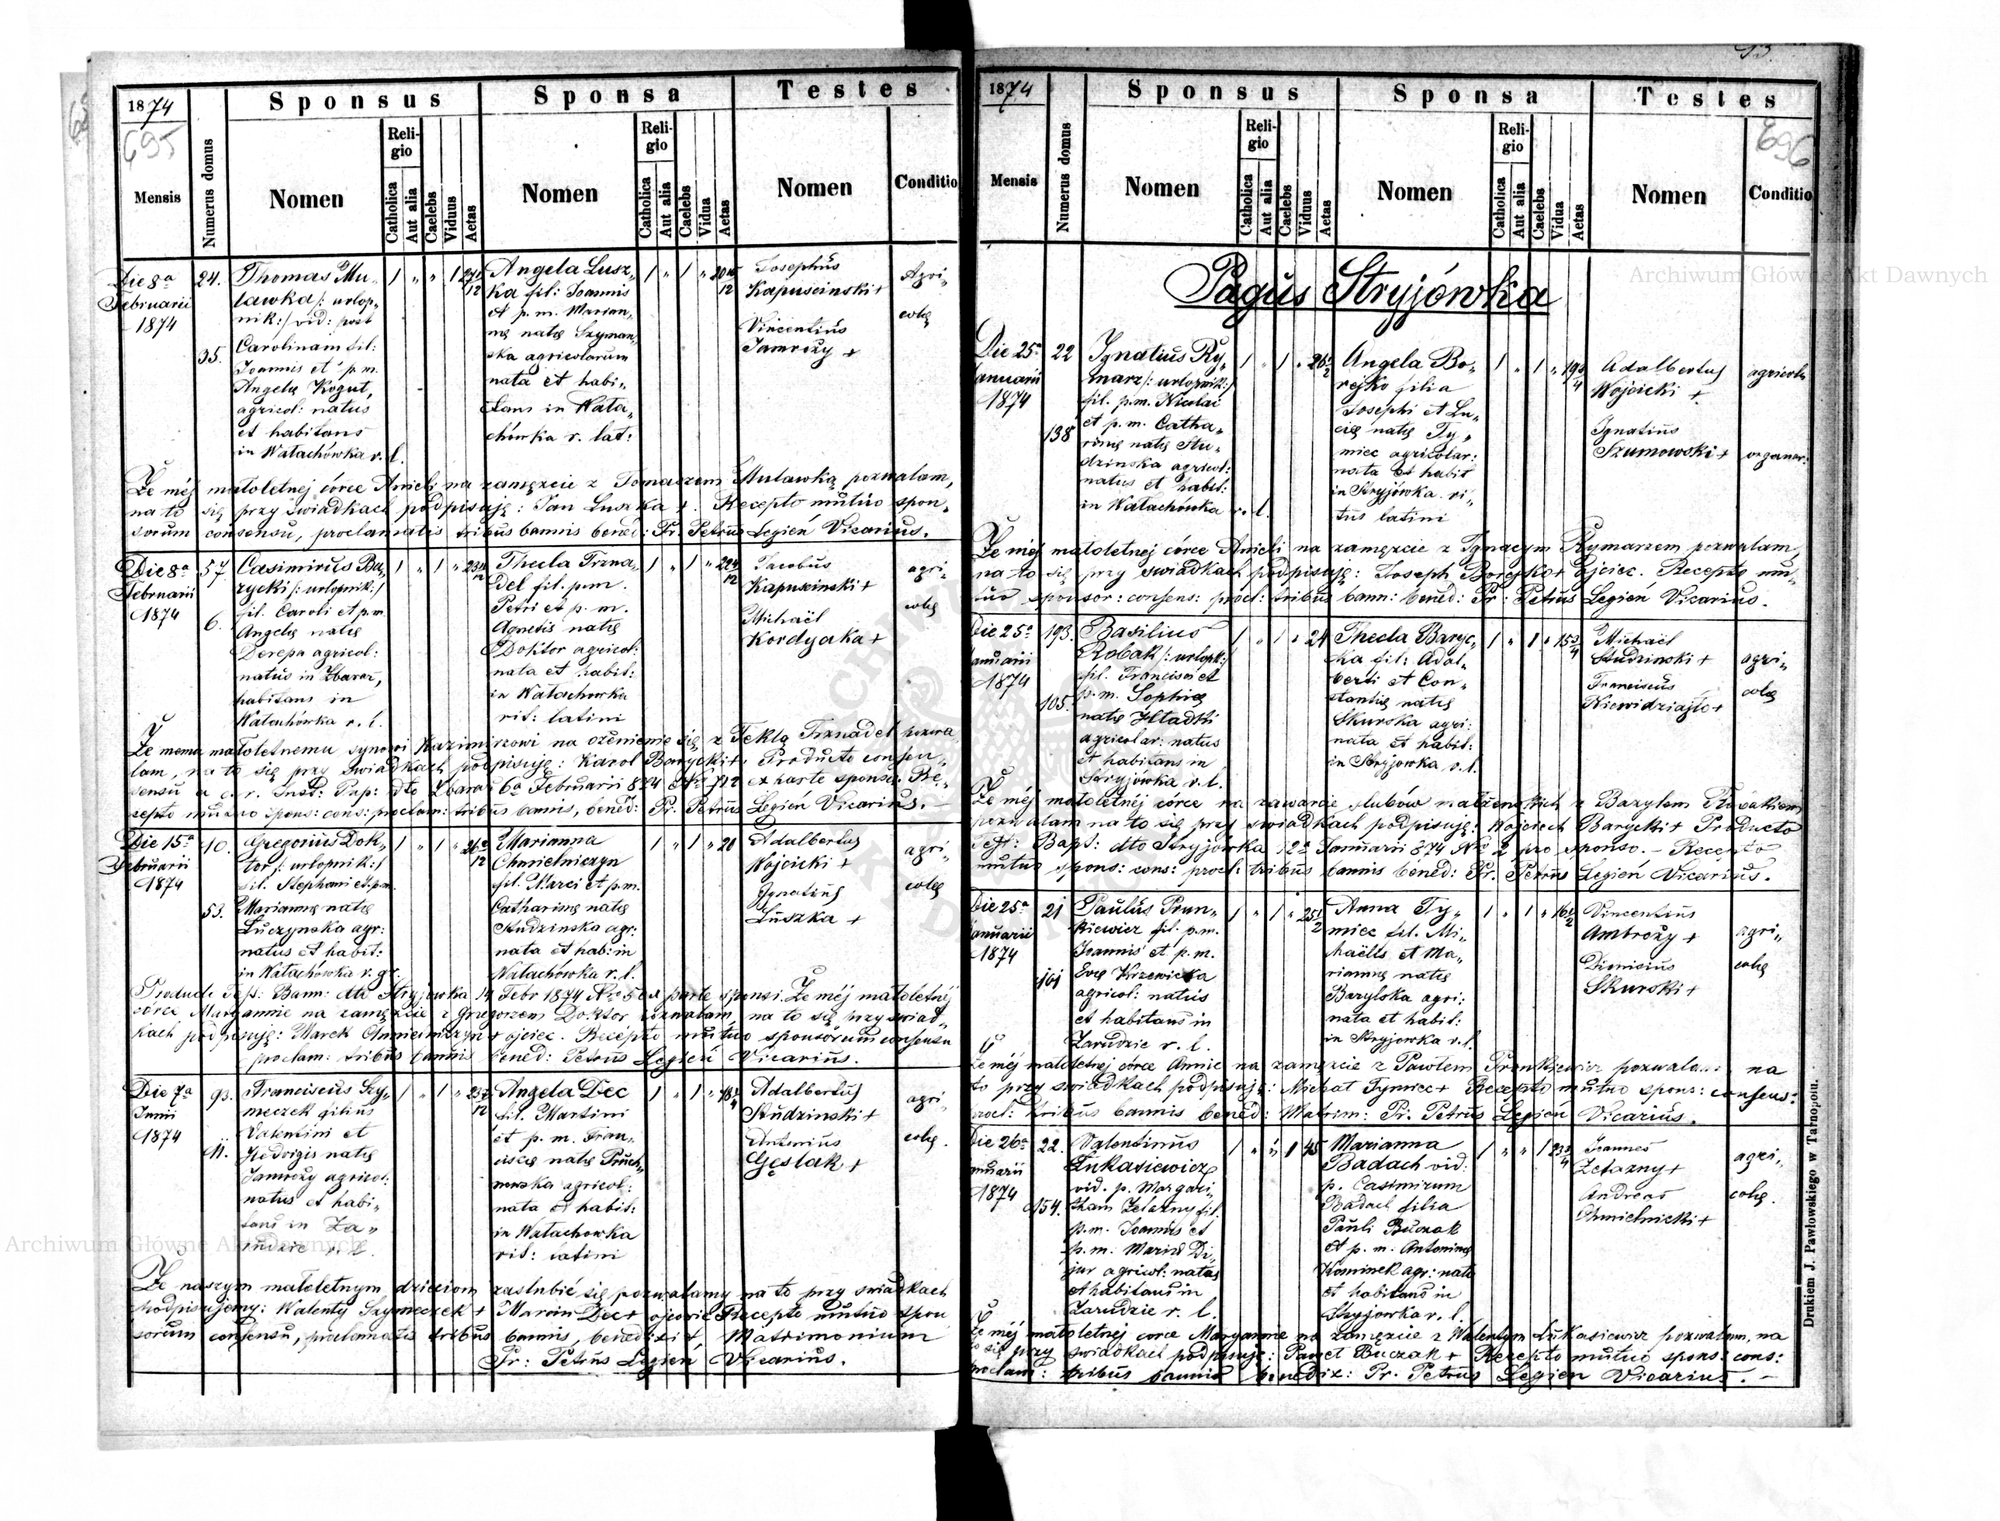 1874
695
Sponsus
Sponsa
Testes
Mensis
Numerus domus
Nomen
Religio
Catholica
Aut alia
Caelebs
Viduus
Aetas
Nomen
Religio
Catholica
Aut alia
Caelebs
Vidua
Aetas
Nomen
Conditio
Die 8a
Februarii
1874
24.
35.
Thomas Mu-
ławka /: urlop-
nik :/ vid: post
Carolinam fil:
Joannis et p.m.
Angelę Kogut,
agricol: natus
et habitans
in Wałachówka r. l.
Angela Lusz-
ka fil: Joannis
et p. m. Marian-
nę natę Szyman-
ska agricolarum
nata et habi-
tans in Wała-
chówka r. lat:
Josephus
Kapuscinski +
Vincentius
Jamroży +
Agri-
colę
Że méj małoletnej córce Anieli na zamęzcie z Tomaszem Muławką pozwalam,
na to się przy świadkach podpisuję: Jan Luszka +. Recepto mutuo spon-
sorum consensu, proclamatis tribus bannis bened: Pr. Petrus Legień Vicarius.
Die 8a
Februarii
1874
57
6.
Casimirus Ba-
rycki /: urlopnik :/
fil. Caroli et p.m.
Angelę natę
Derepa agricol:
natus in Zbaraz,
habitans in
Wałachówka r. l.
Thecla Trzna-
del fil. p.m.
Petri et p. m.
Agnetis natę
Doktor agricol:
nata et habit:
in Wałachowka
rit: latini
Jacobus
Kapuscinski +
Michaël
Kordyaka +
agri-
colę
Że memu małoletnemu synowi Kazimirzowi na ożenienie się z Teklą Trznadel pozwa
lam, na to się przy świadkach podpisuję: Karol Barycki +. Producto consen-
cepto mutuo spons: cons: proclam: tribus bannis, bened: Pr. Petrus Legień Vicarius. —
Die 15a
Februarii
1874
10.
53.
Gregorius Dok-
tor /: urlopnik :/
fil. Stephani et p.m.
Mariannę natę
Luczynska agr:
natus et habit:
in Wałachówka r. gr.
Marianna
Chmielniczyn
fil. Marci et p.m.
Catharinę natę
Studzinska agr:
nata et hab: in
Wałachówka r. l.
Adalbertus
Wojcicki +
Ignatius
Luszka +
agri-
colę
córce Maryannie na zamęzcie z Grzegorzem Doktor pozwalam, na to się przy świad-
kach podpisuję: Marek Chmielniczyn + ojciec. Recepto mutuo sponsorum consensu
proclam: tribus bannis bened: Petrus Legień Vicarius.
Die 7a
Junii
1874
93.
11.
Franciscus Szy-
meczek filius
Valentini et
Hedvigis natę
Jamroży agricol:
natus et habi-
tans in Za-
rudzie r. l.
Angela Dec
fil. Martini
et p. m. Fran-
ciscę natę Pruch-
nicka agricol:
nata et habit:
in Wałachowka
rit: latini
Adalbertus
Studzinski +
Antonius
Gęslak +
agri-
colę.
Że naszym małoletnym dzieciom zaslubić się pozwalamy na to przy swiadkach
podpisujemy: Walenty Szymeczek + Marcin Dec + ojcowie Recepto mutuo spon
sorum consensu, proclamatis tribus bannis, benedixit Matrimonium
Pr: Petrus Legień Vicarius.
1874
696
Sponsus
Sponsa
Testes
Mensis
Numerus domus
Nomen
Religio
Catholica
Aut alia
Caelebs
Viduus
Aetas
Nomen
Religio
Catholica
Aut alia
Caelebs
Vidua
Aetas
Nomen
Conditio
Pagus Stryjówka
Die 25a
Januarii
1874
22
138
Ignatius Ry-
marz /: urlopnik :/
fil. p.m. Nicolai
et p. m. Catha-
rinę natę Stu-
dzinska agricol:
natus et habit:
in Wałachówka r. l.
Angela Bo-
rejko filia
Josephi et Lu-
cię natę Ty-
miec agricolar:
nata et habit
in Stryjówka ri-
tus latini
Adalbertus
Wojcicki +
Ignatius
Szumowski +
agricola
organar:
Że méj małoletnej córce Anieli na zamęzcie z Ignacym Rymarzem pozwalam,
na to się przy swiadkach podpisuję: Joseph Borejko + ojciec. Recepto mu-
tuo sponsor: consens: procl: tribus bann: bened: Pr: Petrus Legień Vicarius.
Die 25a
Januarii
1874
193.
105.
Basilius
Robak /: urlopk :/
fil. Francisci et
p.m. Sophię
natę Hładki
agricolar: natus
et habitans in
Stryjówka r. l.
24
Thecla Baryc-
ka fil: Adal-
berti et Con-
stantię natę
Skurska agri:
nata et habit:
in Stryjowka r. l.
Michaël
Studzinski +
Franciscus
Niewidziajło +
agri-
colę
Że méj małoletnéj córce na zawarcie slubów małżenskich z Bazylem Robakiem
pozwalam na to się przy swiadkach podpisuję: Wojciech Barycki + Producto
Test: Bapt: dto Stryjówka 12a Januarii 874 No 2 pro sponso. — Recepto
mutuo spons: cons: procl: tribus bannis bened: Pr. Petrus Legień Vicarius.
Die 25a
Januarii
1874
21
101
Paulus Fran-
kiewicz fil. p.m.
Joannis et p. m.
Evę Krzewicka
agricol: natus
et habitans in
Zarudzie r. l.
Anna Ty-
miec fil. Mi-
chaëlis et Ma-
riannę natę
Barylska agri:
nata et habit:
in Stryjowka r. l.
Vincentius
Ambroży +
Dionisius
Skurski +
agri-
colę
Że méj małoletnej córce Annie na zamęzcie z Pawłem Frankiewicz pozwalam na
to przy swiadkach podpisuję: Michał Tymiec + Recepto mutuo spons: consens:
procl: tribus bannis bened: Matrim: Pr: Petrus Legień Vicarius.
Die 26a
Januarii
1874
22.
154.
Valentinus
Łukasiewicz
vid. p. Margari-
tham Żelazny fil.
p.m. Joannis et
p.m. Marię Di-
jur agricol: natus
et habitans in
Zarudzie r. l.
45
Marianna
Badach vid:
p. Casimirum
Badach filia
Pauli Buczak
et p. m. Antoninę
Kominek agr: nata
et habitans in
Stryjowka r. l.
Joannes
Żelazny +
Andreas
Chmielnicki +
agri-
colę.
Że méj małoletnéj córce Maryannie na zamęzcie z Walentym Łukasiewicz pozwalam, na
to się przy swiadkach podpisuję: Paweł Buczak + Recepto mutuo spons: cons:
proclam: tribus bannis benedix: Pr. Petrus Legien Vicarius. —
Drukiem J. Pawłowskiego w Tarnopolu.
Archiwum Główne Akt Dawnych
Archiwum Główne Akt Dawnych